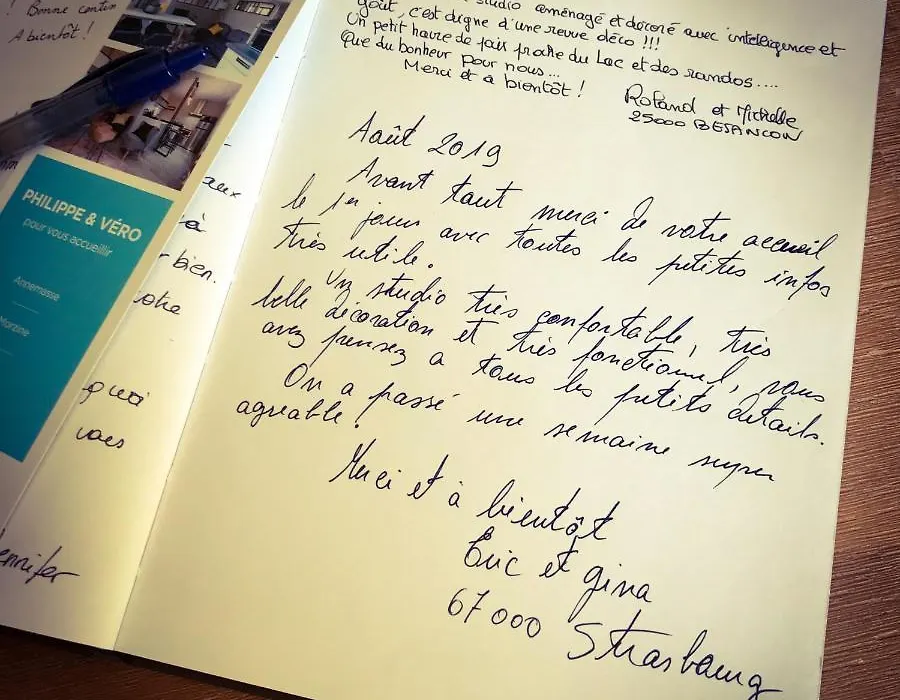 ! Bonne contin
A bientôt !
PHILIPPE & VÉRO
pour vous accueillir
Annemasse
Morzine
aux
à
bien.
otre
quoi
vous
ennifer
studio aménagé et décoré avec intelligence et
goût, c'est digne d'une revue déco !!!
Un petit havre de paix proche du Lac et des randos....
Que du bonheur pour nous...
Merci et à bientôt !
Roland et Michelle
25000 BESANCON
Août 2019
Avant tout merci de votre accueil
le 1er jour avec toutes les petites infos
très utile.
Un studio très confortable, très
belle décoration et très fonctionnel, vous
avez pensez a tous les petits détails.
On a passé une semaine super
agréable !
Merci et à bientôt
Eric et gina
67000 Strasbourg